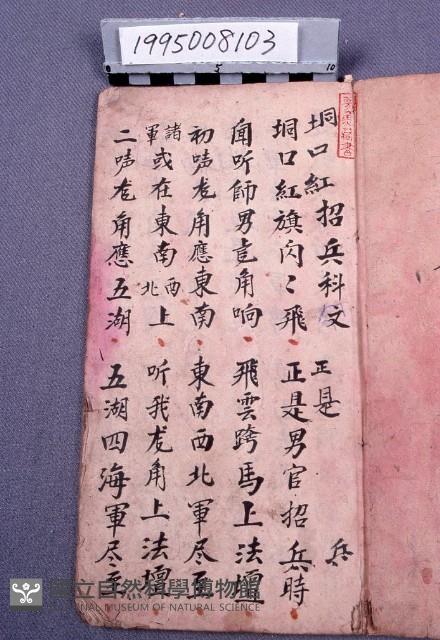 1995008103
0 5 10
垌口紅招兵科文 正是 兵
垌口紅旗閃〻飛 正是男官招兵時
聞听師男壱角响 飛雲跨馬上法壇
初声尨角應東南 東南西北軍尽至
諸軍或在東南西北上 听我尨角上法壇
二声尨角應五湖 五湖四海軍尽至
國立自然科學博物館
NATIONAL MUSEUM OF NATURAL SCIENCE